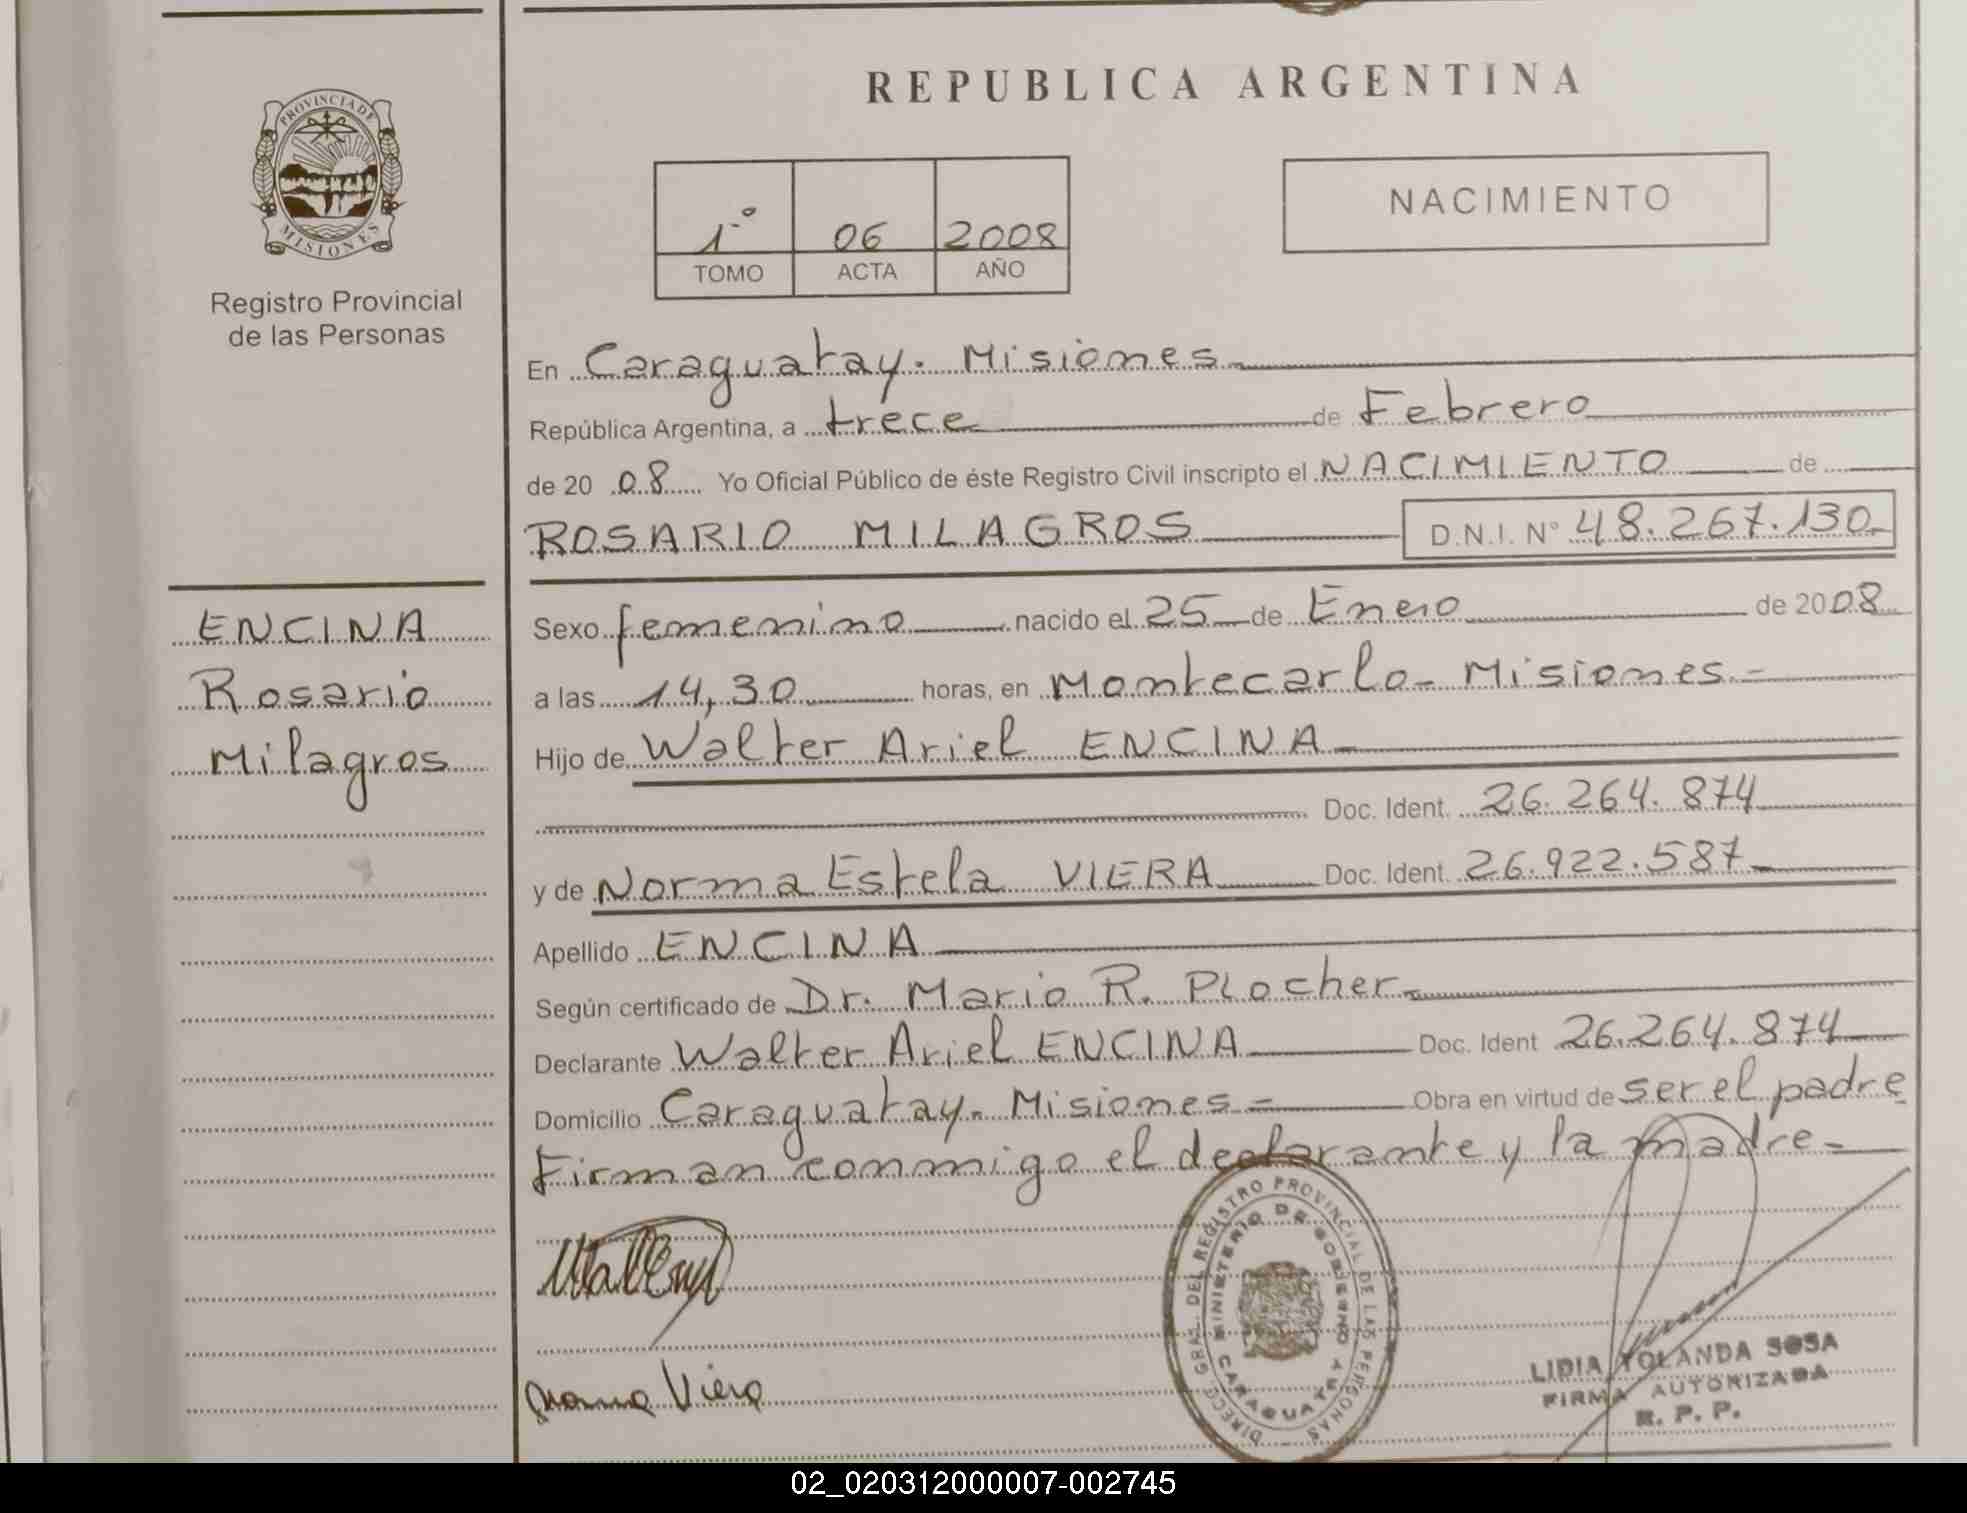 PROVINCIA DE
MISIONES
Registro Provincial
de las Personas
ENCINA
Rosario
Milagros
REPUBLICA ARGENTINA
1º 06 2008
TOMO ACTA AÑO
NACIMIENTO
En Caraguatay. Misiones
República Argentina, a trece de Febrero
de 20 08 Yo Oficial Público de éste Registro Civil inscripto el NACIMIENTO de
ROSARIO MILAGROS D.N.I. Nº 48.267.130
Sexo femenino nacido el 25 de Enero de 2008
a las 14,30 horas, en Montecarlo- Misiones.-
Hijo de Walter Ariel ENCINA
Doc. Ident. 26.264.874
y de Norma Estela VIERA Doc. Ident. 26.922.587
Apellido ENCINA
Según certificado de Dr. Mario R. Plocher
Declarante Walter Ariel ENCINA Doc. Ident 26.264.874
Domicilio Caraguatay. Misiones- Obra en virtud de ser el padre
Firman conmigo el declarante y la madre-
Norma Viera
DIRECC. GRAL. DEL REGISTRO PROVINCIAL DE LAS PERSONAS
MINISTERIO DE GOBIERNO
CARAGUATAY
LIDIA YOLANDA SOSA
FIRMA AUTORIZADA
R. P. P.
02_020312000007-002745